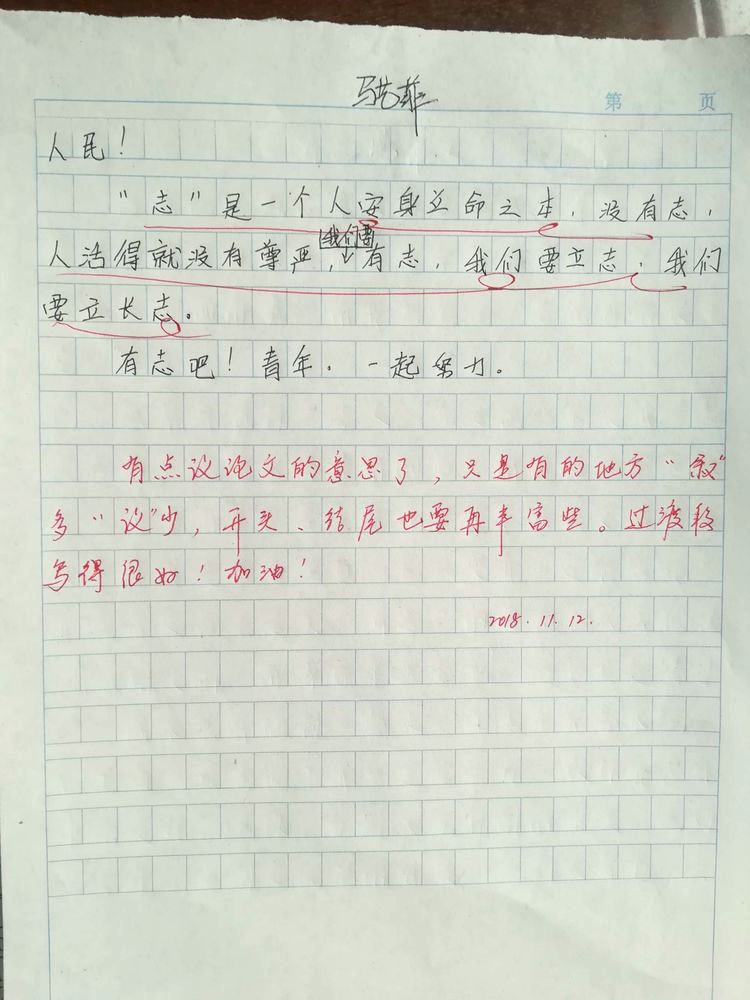 马艺菲
第 页
人民!
"志"是一个人安身立命之本,没有志,
我们要
人活得就没有尊严,有志,我们要立志,我们
要立长志。
有志吧!青年,一起努力。
有点议论文的意思了,只是有的地方"叙"
多"议"少,开头、结尾也要再丰富些。过渡段
写得很好!加油!
2018.11.12.